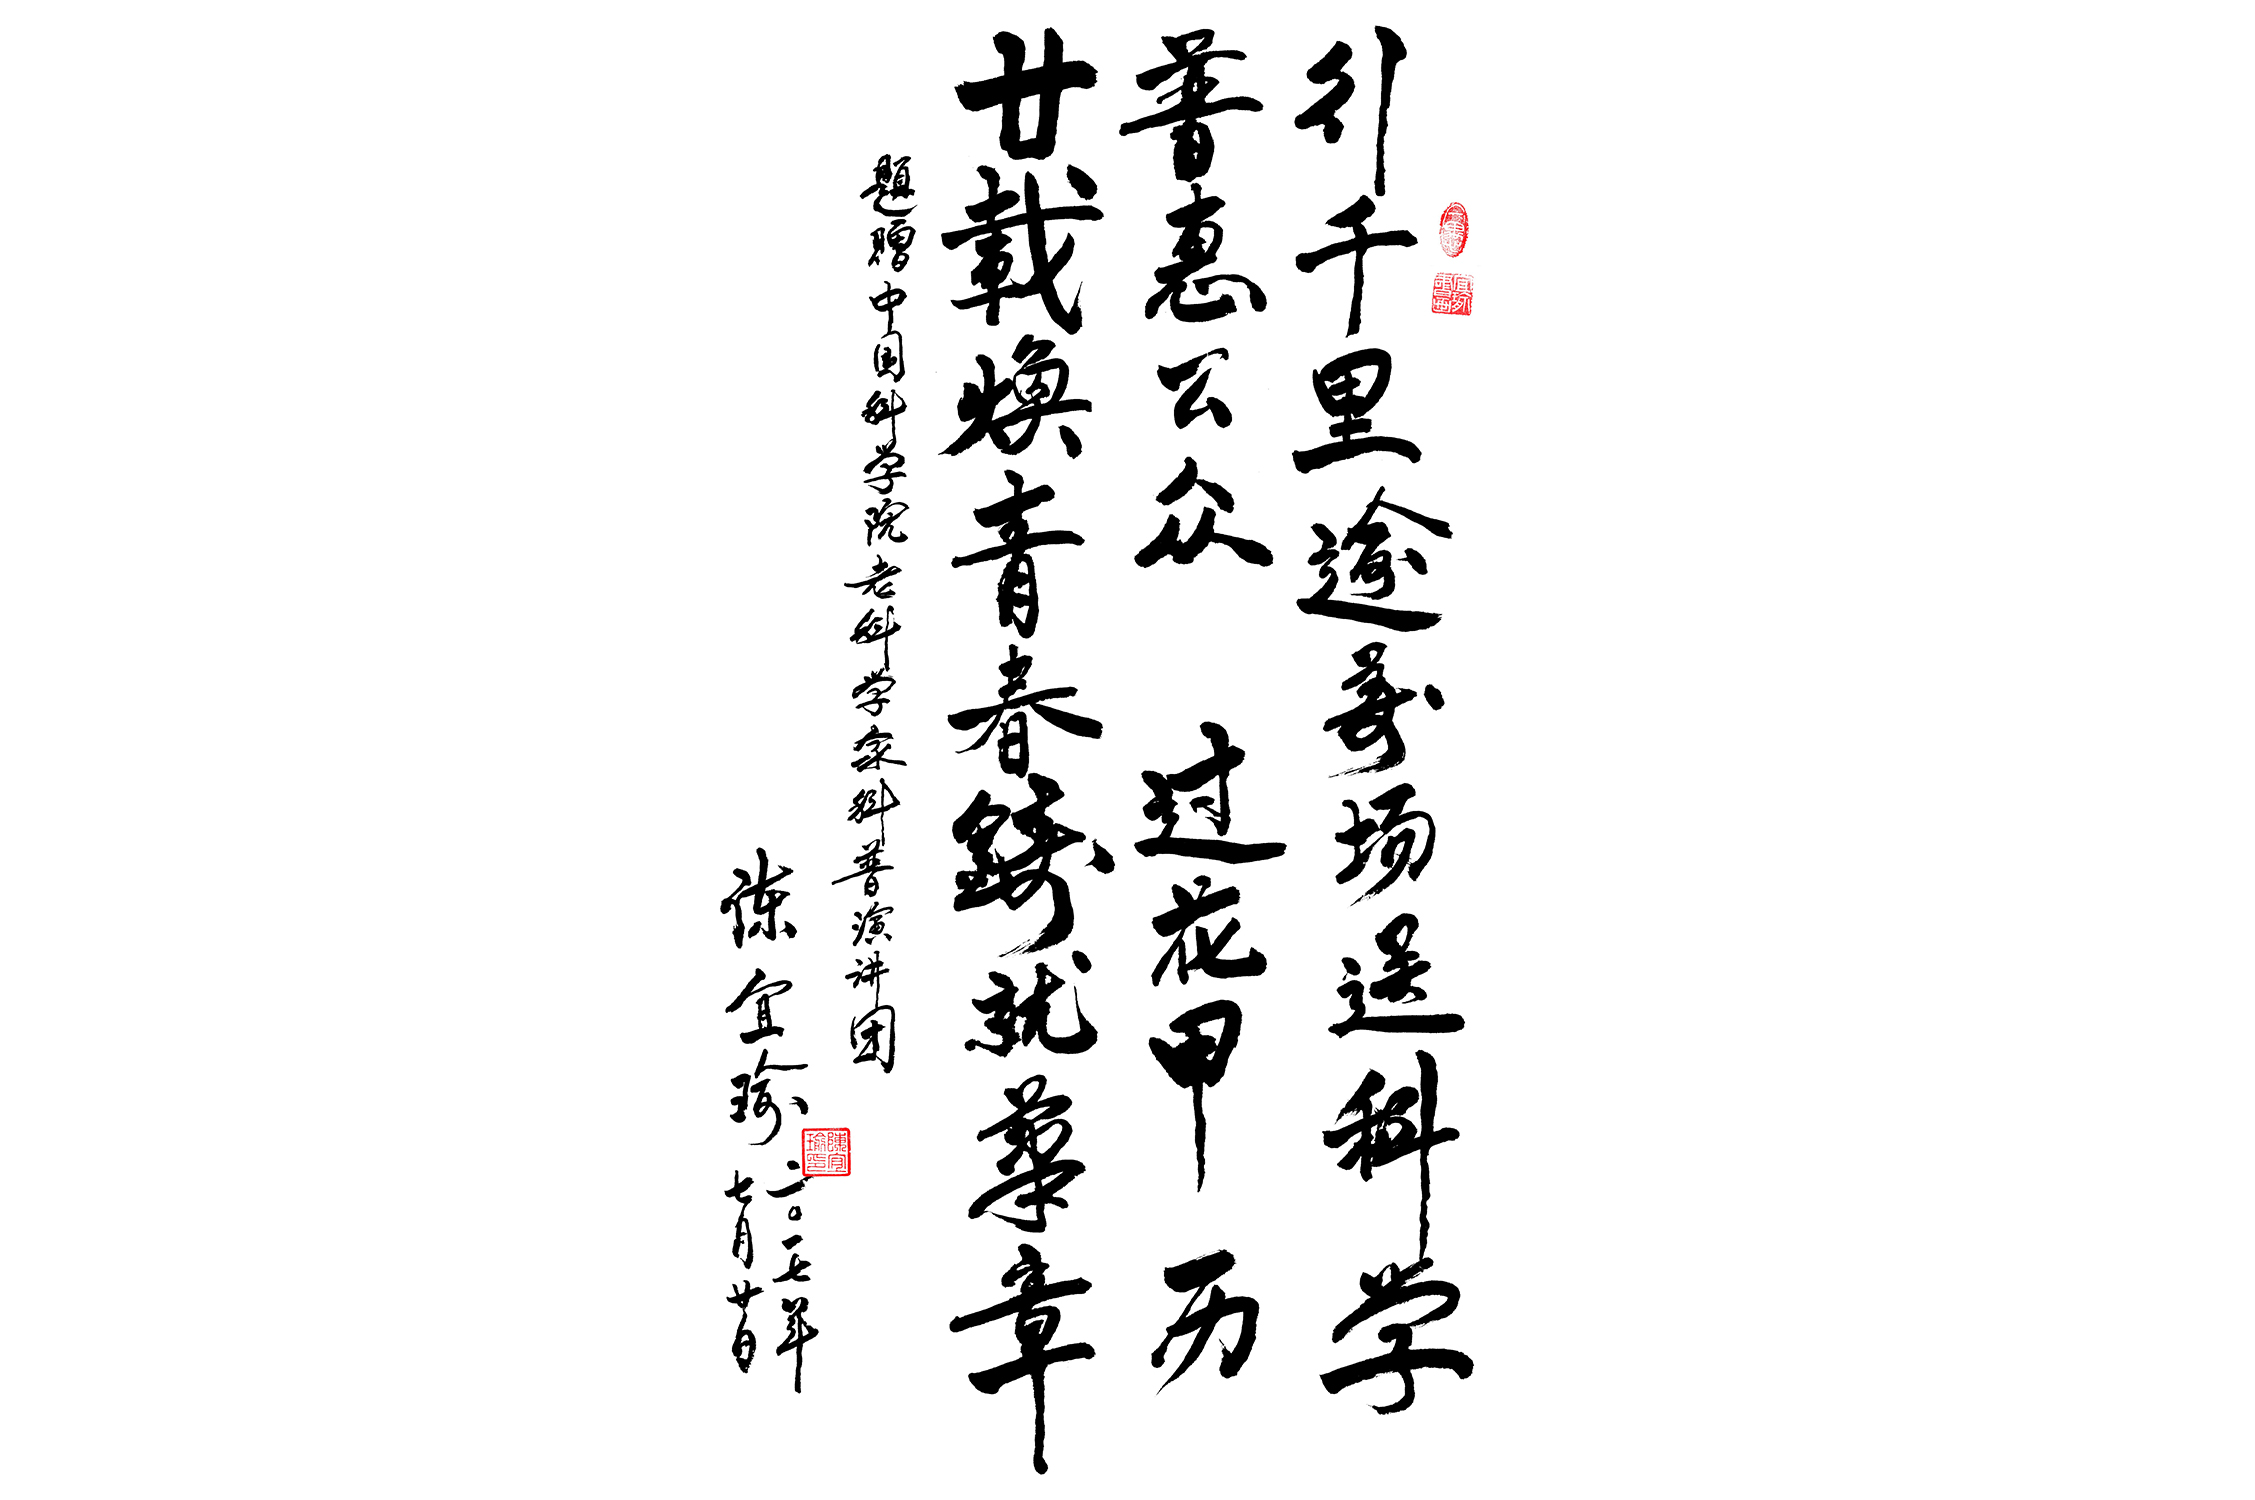 行千里逾萬场送科学
普惠公众 过花甲 历
廿載焕青春鑄就華章
题赠中国科学院老科学家科普演讲团
陈宜瑜
二〇一七年
七月廿日
陳宜瑜印